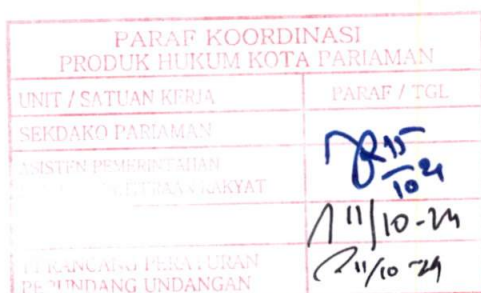 PARAF KOORDINASI
PRODUK HUKUM KOTA PARIAMAN
UNIT / SATUAN KERJA PARAF / TGL
SEKDAKO PARIAMAN
ASISTEN PEMERINTAHAN
RAKYAT
15/10-24
11/10-24
PERANCANG PERATURAN
PERUNDANG UNDANGAN
11/10-24